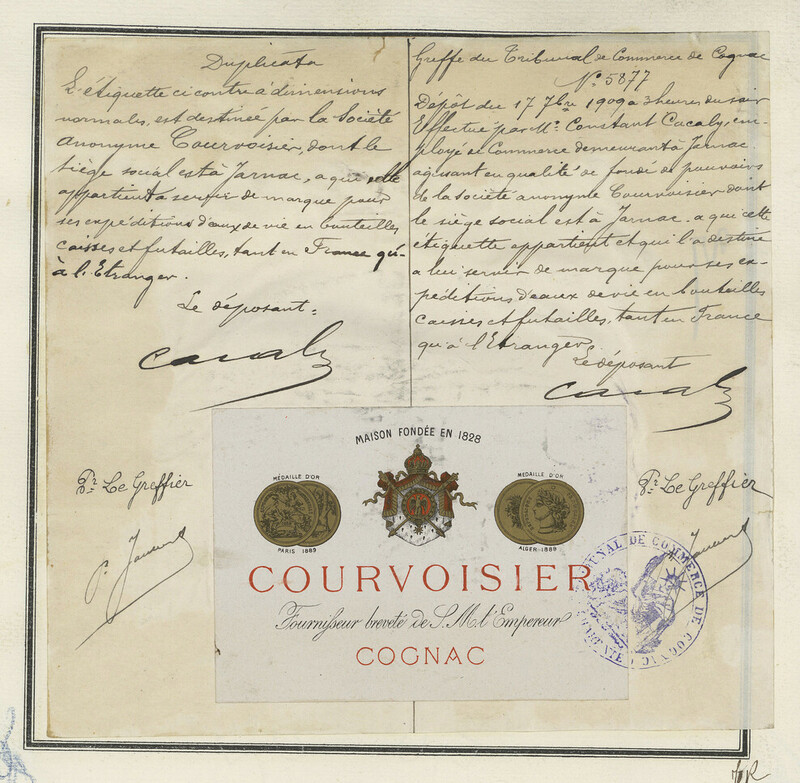 Duplicata
L'étiquette ci contre à dimensions
normales, est destinée par la Société
Anonyme Courvoisier, dont le
siège social est à Jarnac, a qui elle
appartient a servir de marque pour
ses expéditions d'eaux de vie en bouteilles
caisses et futailles, tant en France qu'-
à l'Etranger.
Le déposant=
Cacaly
Pr. Le Greffier
Greffe du Tribunal de Commerce de Cognac
No. 5877
Dépôt du 17 7bre 1909 a 3 heures du soir
Effectué par Mr. Constant Cacaly, em-
ployé de Commerce demeurant à Jarnac
agissant en qualité de fondé de pouvoirs
de la société anonyme Courvoisier dont
le siège social est à Jarnac. a qui cette
étiquette appartient et qui l'a destine
a lui servir de marque pour ses ex-
péditions d'eaux de vie en bouteilles
caisses et futailles, tant en France
qu'à l'Etranger.
Le déposant
Cacaly
Pr. Le Greffier
MAISON FONDÉE EN 1828
MÉDAILLE D'OR
PARIS 1889
MEDAILLE D'OR
ALGER-1888
COURVOISIER
Fournisseur breveté de S.M. l'Empereur
COGNAC
TRIBUNAL DE COMMERCE DE COGNAC